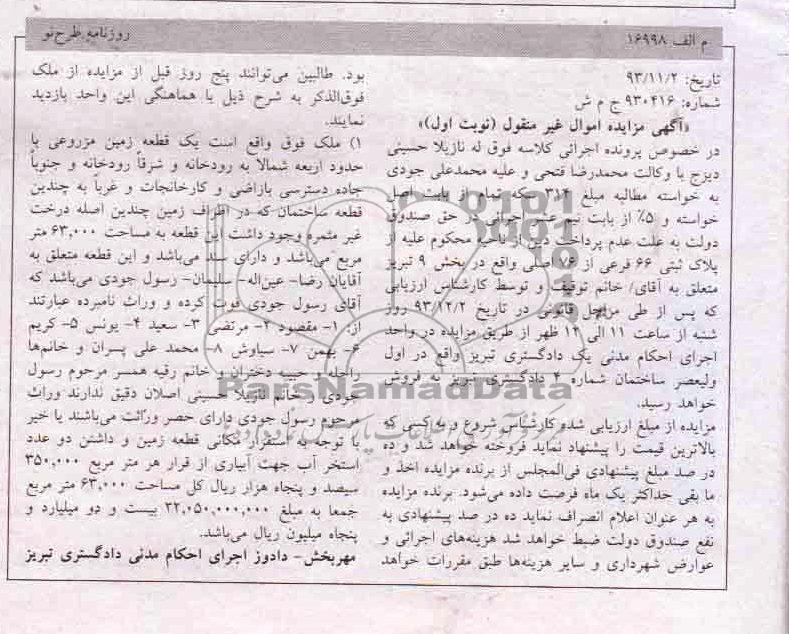 م الف ۱۶۹۹۸
روزنامه طرح‌نو
تاریخ: ۹۳/۱۱/۲
شماره: ۹۳۰۴۱۶ ج م ش
«آگهی مزایده اموال غیر منقول (نوبت اول)»
در خصوص پرونده اجرائی کلاسه فوق له نازیلا حسینی
دیزج با وکالت محمدرضا فتحی و علیه محمدعلی جودی
به خواسته مطالبه مبلغ ۳۱۴ سکه تمام از بابت اصل
خواسته و ۵٪ از بابت نیم عشر اجرائی در حق صندوق
دولت به علت عدم پرداخت دین از ناحیه محکوم علیه از
پلاک ثبتی ۶۶ فرعی از ۷۶ اصلی واقع در بخش ۹ تبریز
متعلق به آقای/ خانم توقیف و توسط کارشناس ارزیابی
که پس از طی مراحل قانونی در تاریخ ۹۳/۱۲/۲ روز
شنبه از ساعت ۱۱ الی ۱۲ ظهر از طریق مزایده در واحد
اجرای احکام مدنی یک دادگستری تبریز واقع در اول
ولیعصر ساختمان شماره ۴ دادگستری تبریز به فروش
خواهد رسید.
مزایده از مبلغ ارزیابی شده کارشناس شروع و به کسی که
بالاترین قیمت را پیشنهاد نماید فروخته خواهد شد و ده
در صد مبلغ پیشنهادی فی‌المجلس از برنده مزایده اخذ و
ما بقی حداکثر یک ماه فرصت داده می‌شود. برنده مزایده
به هر عنوان اعلام انصراف نماید ده در صد پیشنهادی به
نفع صندوق دولت ضبط خواهد شد هزینه‌های اجرائی و
عوارض شهرداری و سایر هزینه‌ها طبق مقررات خواهد
بود. طالبین می‌توانند پنج روز قبل از مزایده از ملک
فوق‌الذکر به شرح ذیل با هماهنگی این واحد بازدید
نمایند.
۱) ملک فوق واقع است یک قطعه زمین مزروعی با
حدود اربعه شمالاً به رودخانه و شرقاً رودخانه و جنوباً
جاده دسترسی باراضی و کارخانجات و غرباً به چندین
قطعه ساختمان که در اطراف زمین چندین اصله درخت
غیر مثمره وجود داشت این قطعه به مساحت ۶۳,۰۰۰ متر
مربع می‌باشد و دارای سند می‌باشد و این قطعه متعلق به
آقایان رضا- عین‌اله- سلیمان- رسول جودی می‌باشد که
آقای رسول جودی فوت کرده و وراث نامبرده عبارتند
از: ۱- مقصود ۲- مرتضی ۳- سعید ۴- یونس ۵- کریم
۶- بهمن ۷- سیاوش ۸- محمد علی پسران و خانم‌ها
راحله و حبیبه دختران و خانم رقیه همسر مرحوم رسول
جودی و خانم نازیلا حسینی اصلان دقیق ندارند وراث
مرحوم رسول جودی دارای حصر وراثت می‌باشند یا خیر
با توجه به استقرار مکانی قطعه زمین و داشتن دو عدد
استخر آب جهت آبیاری از قرار هر متر مربع ۳۵۰,۰۰۰
سیصد و پنجاه هزار ریال کل مساحت ۶۳,۰۰۰ متر مربع
جمعا به مبلغ ۲۲,۰۵۰,۰۰۰,۰۰۰ بیست و دو میلیارد و
پنجاه میلیون ریال می‌باشد.
مهربخش- دادورز اجرای احکام مدنی دادگستری تبریز
ParsNamadData